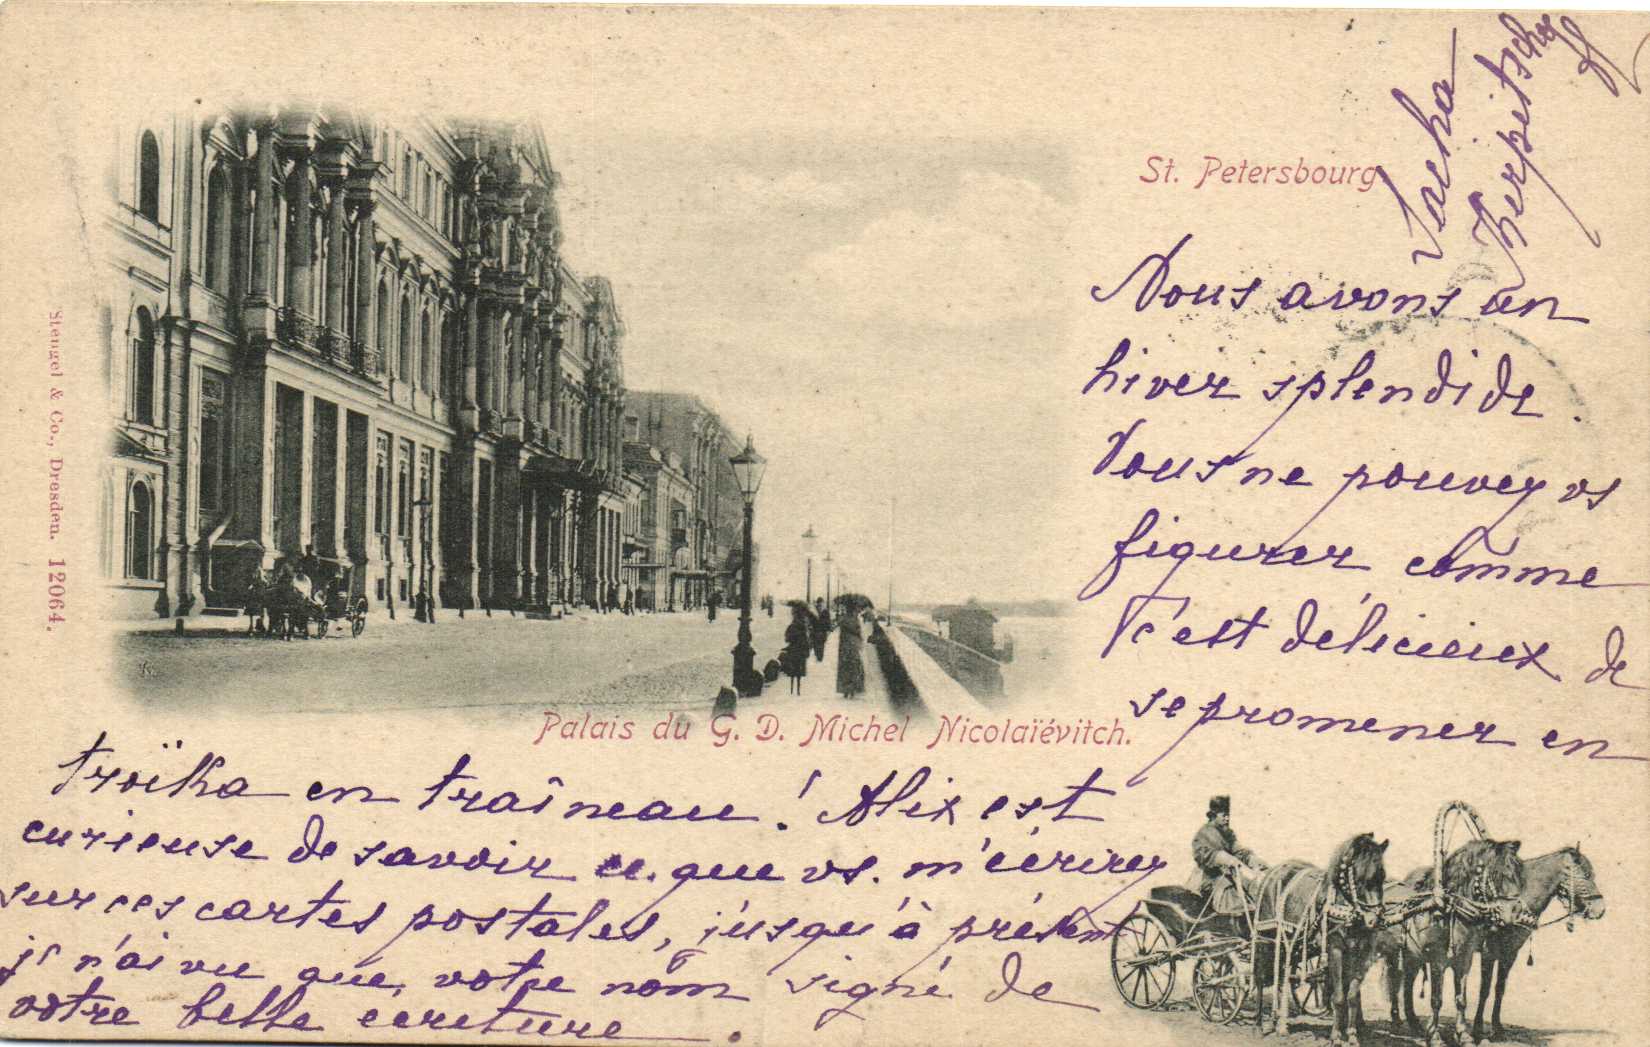 St. Petersbourg
Sacha
Nous avons un
hiver splendide.
Vous ne pouvez vs
figurer comme
c'est délicieux de
se promener en
Palais du G. D. Michel Nicolaïévitch.
troïka en traîneau! Alix est
curieuse de savoir ce que vs. m'écrirez
sur ces cartes postales, jusqu'à présent
je n'ai vu que votre nom signé de
votre belle ecriture.
Stengel & Co., Dresden. 12064.